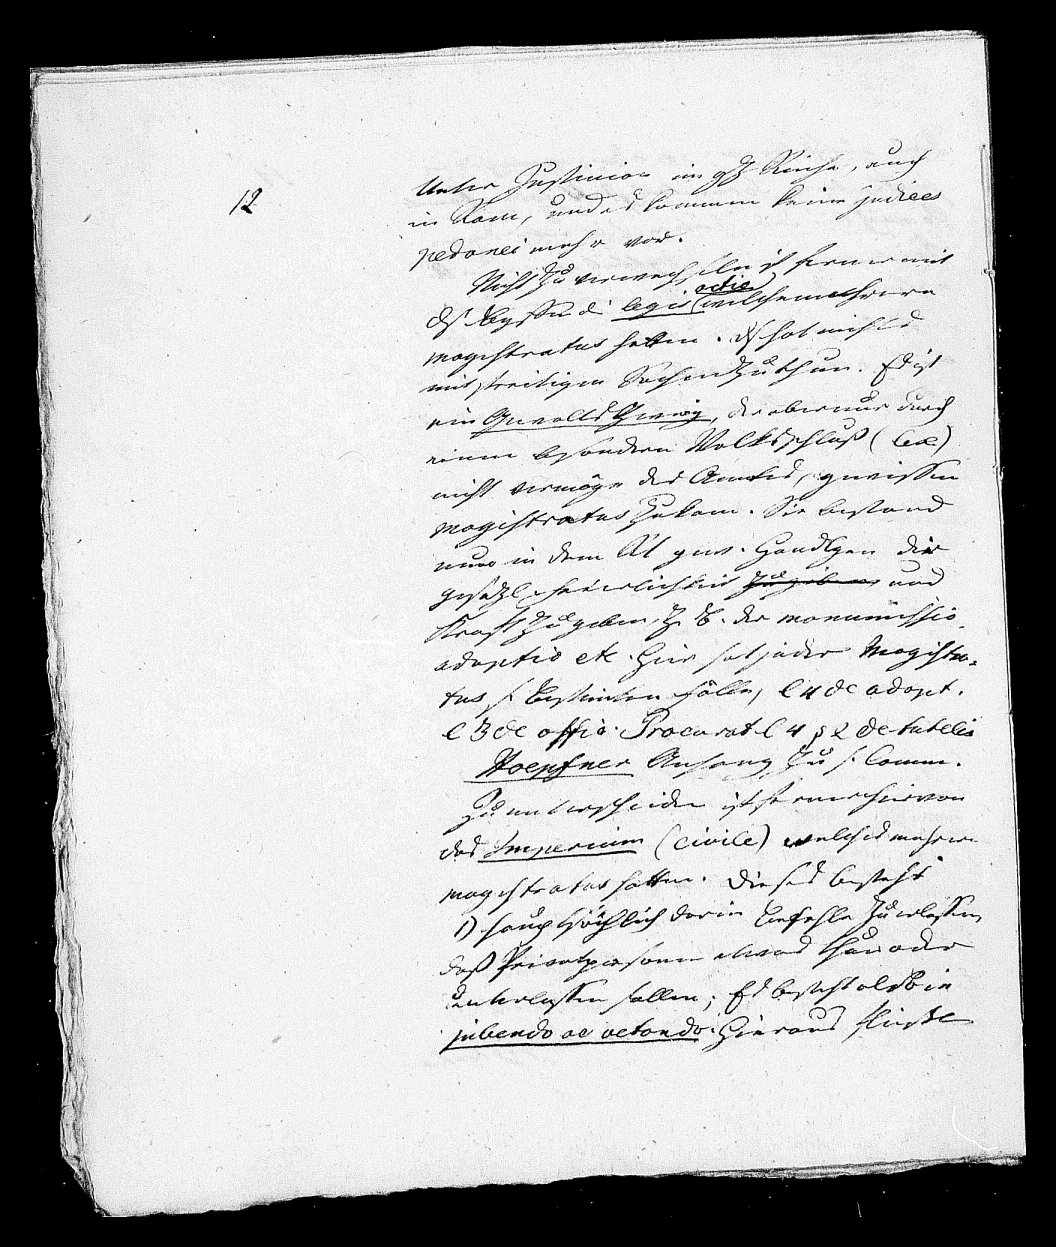 12
Unter Justinian im gz Reiche, auch
in Rom, und es kommen keine judices
pedanei mehr vor.
Nicht zu verwechseln ist ferner mit
actio
ds legis welche mehrere
magistratus hatten. ds hat nichts
mit streitigen Sachen zu thun. Es ist
ein Gewalts Zweig, der aber nur durch
einen besondren Volksschluß (lex)
nicht vermöge des Amtes, gewissen
magistratus zukam. Sie bestand
nur in dem Rt gew. Handlgen die
gesezl. Feierlichkeit zu geben und
Kraft zu geben, z. B. der manumissio,
adoptio etc. Hier hat jeder Magistra-
tus s. bestimten Fälle, l 4 de adopt.
l 3 de offic. Procurat l 4 § 2 de tutelis
Hoepfner Anhang zu s. Comm.
Zu unterscheiden ist ferner hiervon
das Imperium (civile) welches mehrere
magistratus hatten. Dieses besteht
1) hauptsächlich darin Befehle zu erlassen,
daß Privatpersonen etwas thun oder
unterlassen sollen; Es besteht also in
jubendo ac vetando. Hieraus fließt